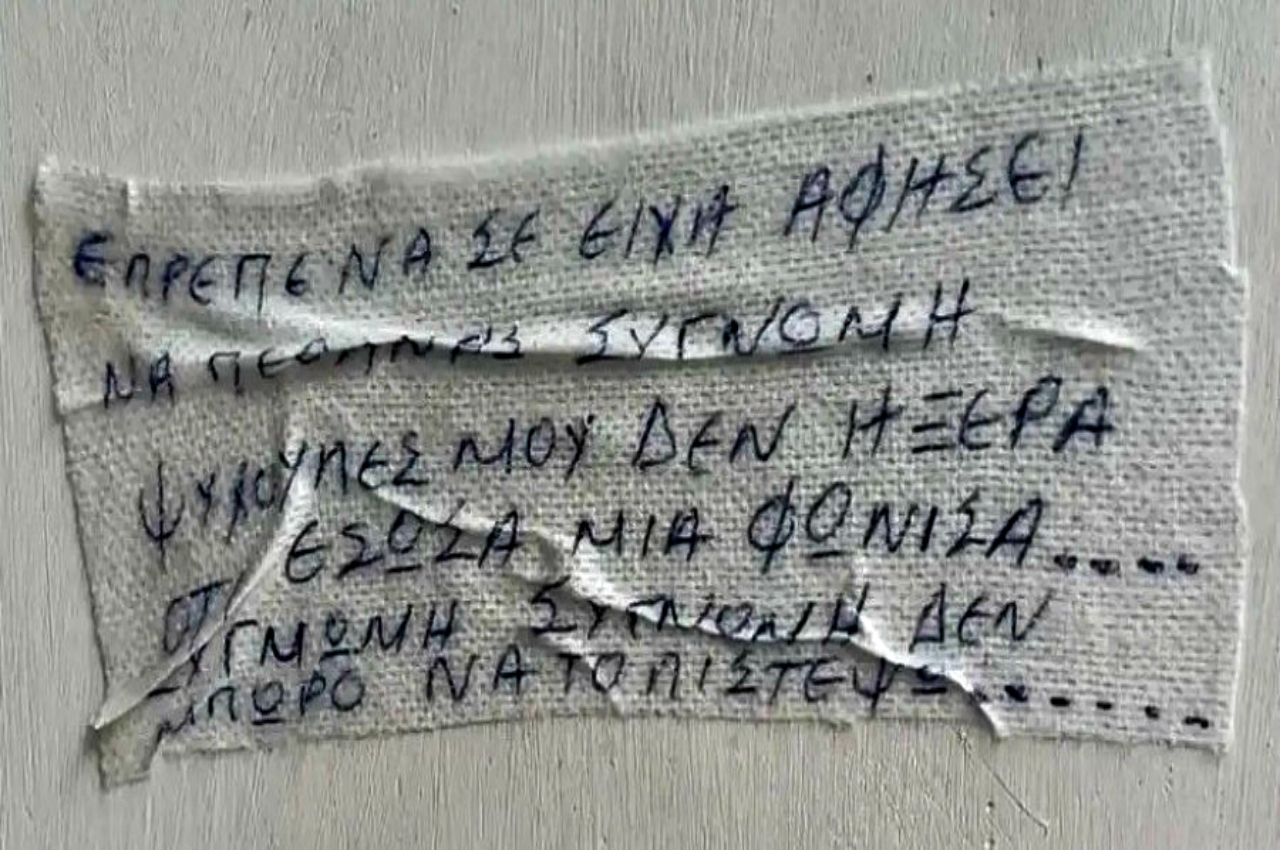 ΕΠΡΕΠΕ ΝΑ ΣΕ ΕΙΧΑ ΑΦΗΣΕΙ
ΝΑ ΠΕΘΑΝΕΙΣ ΣΥΓΝΟΜΗ
ΨΥΧΟΥΠΕΣ ΜΟΥ ΔΕΝ ΗΞΕΡΑ
ΕΣΩΣΑ ΜΙΑ ΦΩΝΙΣΑ....
ΣΥΓΜΩΜΗ ΣΥΓΝΩΜΗ ΔΕΝ
ΜΠΩΡΟ ΝΑ ΤΟ ΠΙΣΤΕΨΩ......